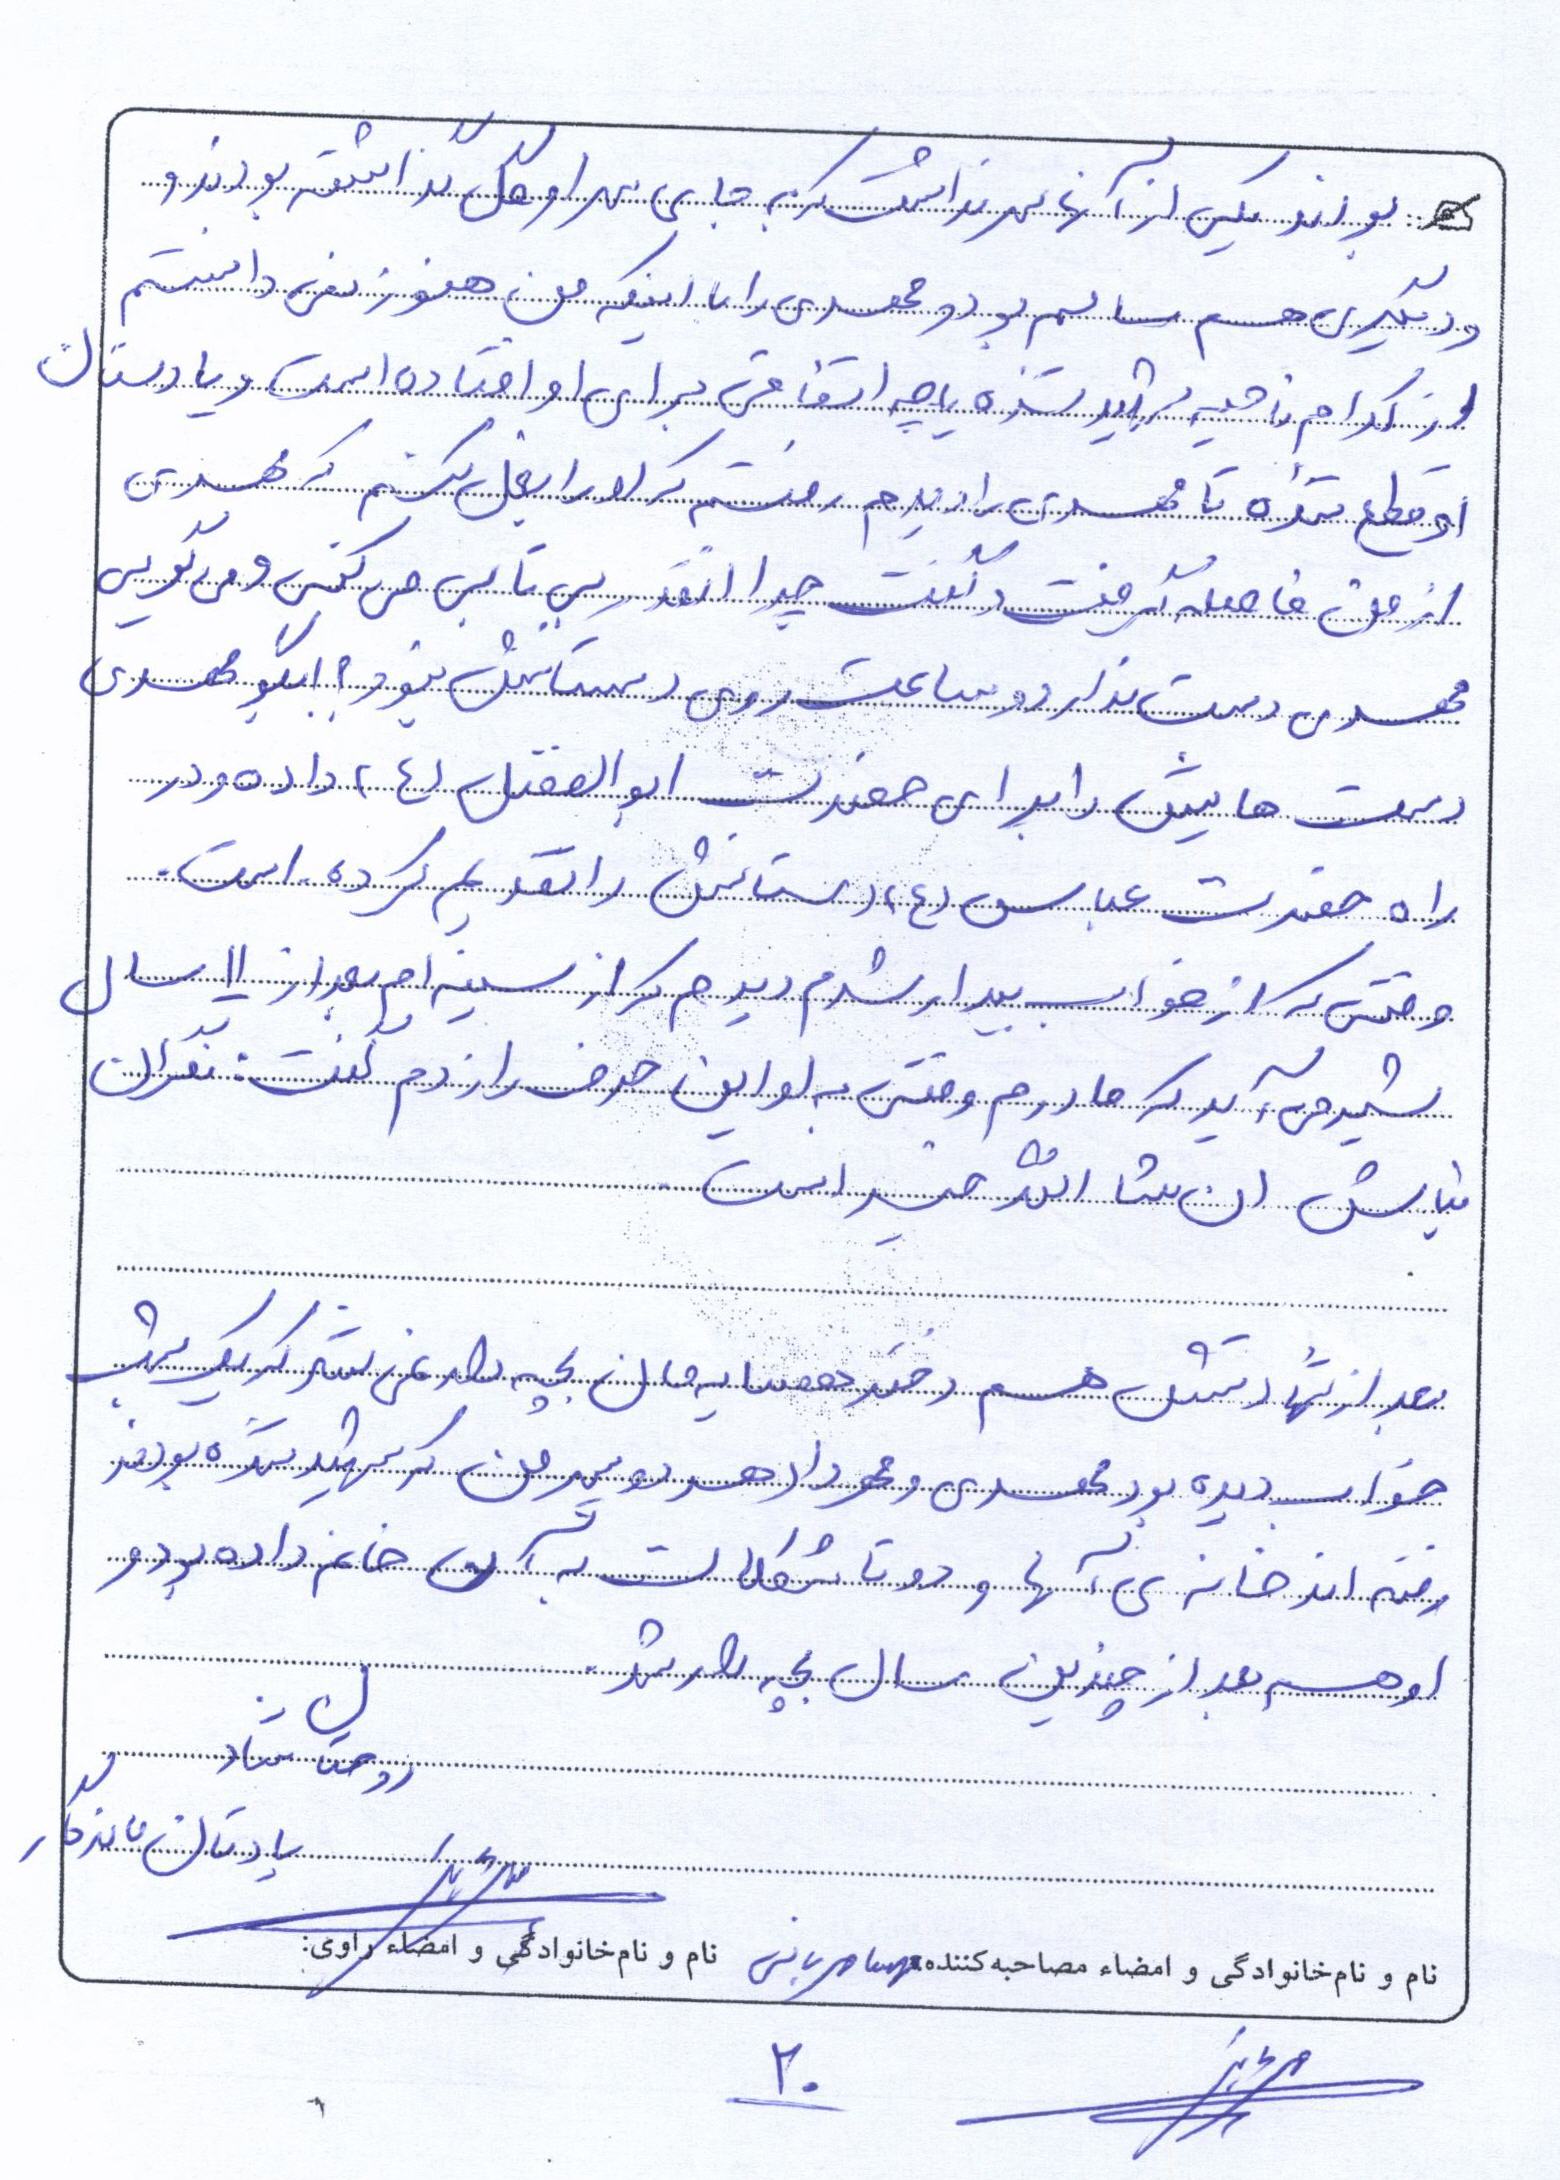 بودند یکی از آنها سر نداشت که به جای سر او گل گذاشته بودند و
و دیگری هم سالم بود و مهدی را با اینکه من هنوز نمی دانستم
از کدام ناحیه شهید شده یا چه اتفاقی برای او افتاده است و یا دستان
او قطع شده تا مهدی را دیدم رفتم که او را بغل بکنم که مهدی
از من فاصله گرفت و گفت چرا انقدر بی تابی می کنی و می گویی
مهدی دست ندارد و ساعت روی دستانش نبود؟ بگو مهدی
دست هایش را برای حضرت ابوالفضل (ع) داده و در
راه حضرت عباس (ع) دستانش را تقدیم کرده است.
وقتی که از خواب بیدار شدم دیدم که از سینه ام بعد از ۱۱ سال
شیر می آید که مادرم وقتی به او این حرف را زدم گفت: نگران
نباش ان شا الله خیر است
بعد از شهادتش هم دختر همسایه مان بچه دار نمی شد که یک شب
خواب دیده بود مهدی و مهرداد هر دو پسر من که شهید شده بودند
رفته اند خانه ی آنها و دو تا شکلات به آن خانم داده بود و
او هم بعد از چندین سال بچه دار شد.
روحشان شاد
یادتان ماندگار
نام و نام خانوادگی و امضاء مصاحبه کننده: نام و نام خانوادگی و امضاء راوی:
۲۰